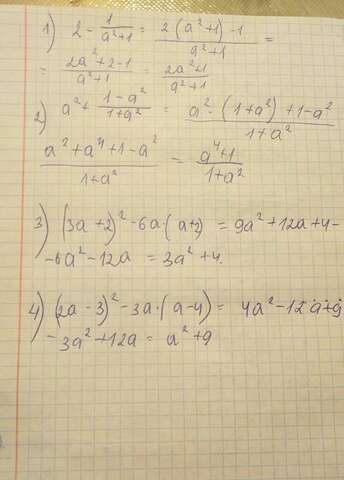 1) 2 - 1/(a²+1) = (2(a²+1)-1)/(a²+1) =
= (2a²+2-1)/(a²+1) = (2a²+1)/(a²+1)
2) a² + (1-a²)/(1+a²) = (a²·(1+a²)+1-a²)/(1+a²)
(a²+a⁴+1-a²)/(1+a²) = (a⁴+1)/(1+a²)
3) (3a+2)²-6a·(a+2) = 9a²+12a+4-
-6a²-12a = 3a²+4.
4) (2a-3)²-3a·(a-4) = 4a²-12a+9
-3a²+12a = a²+9